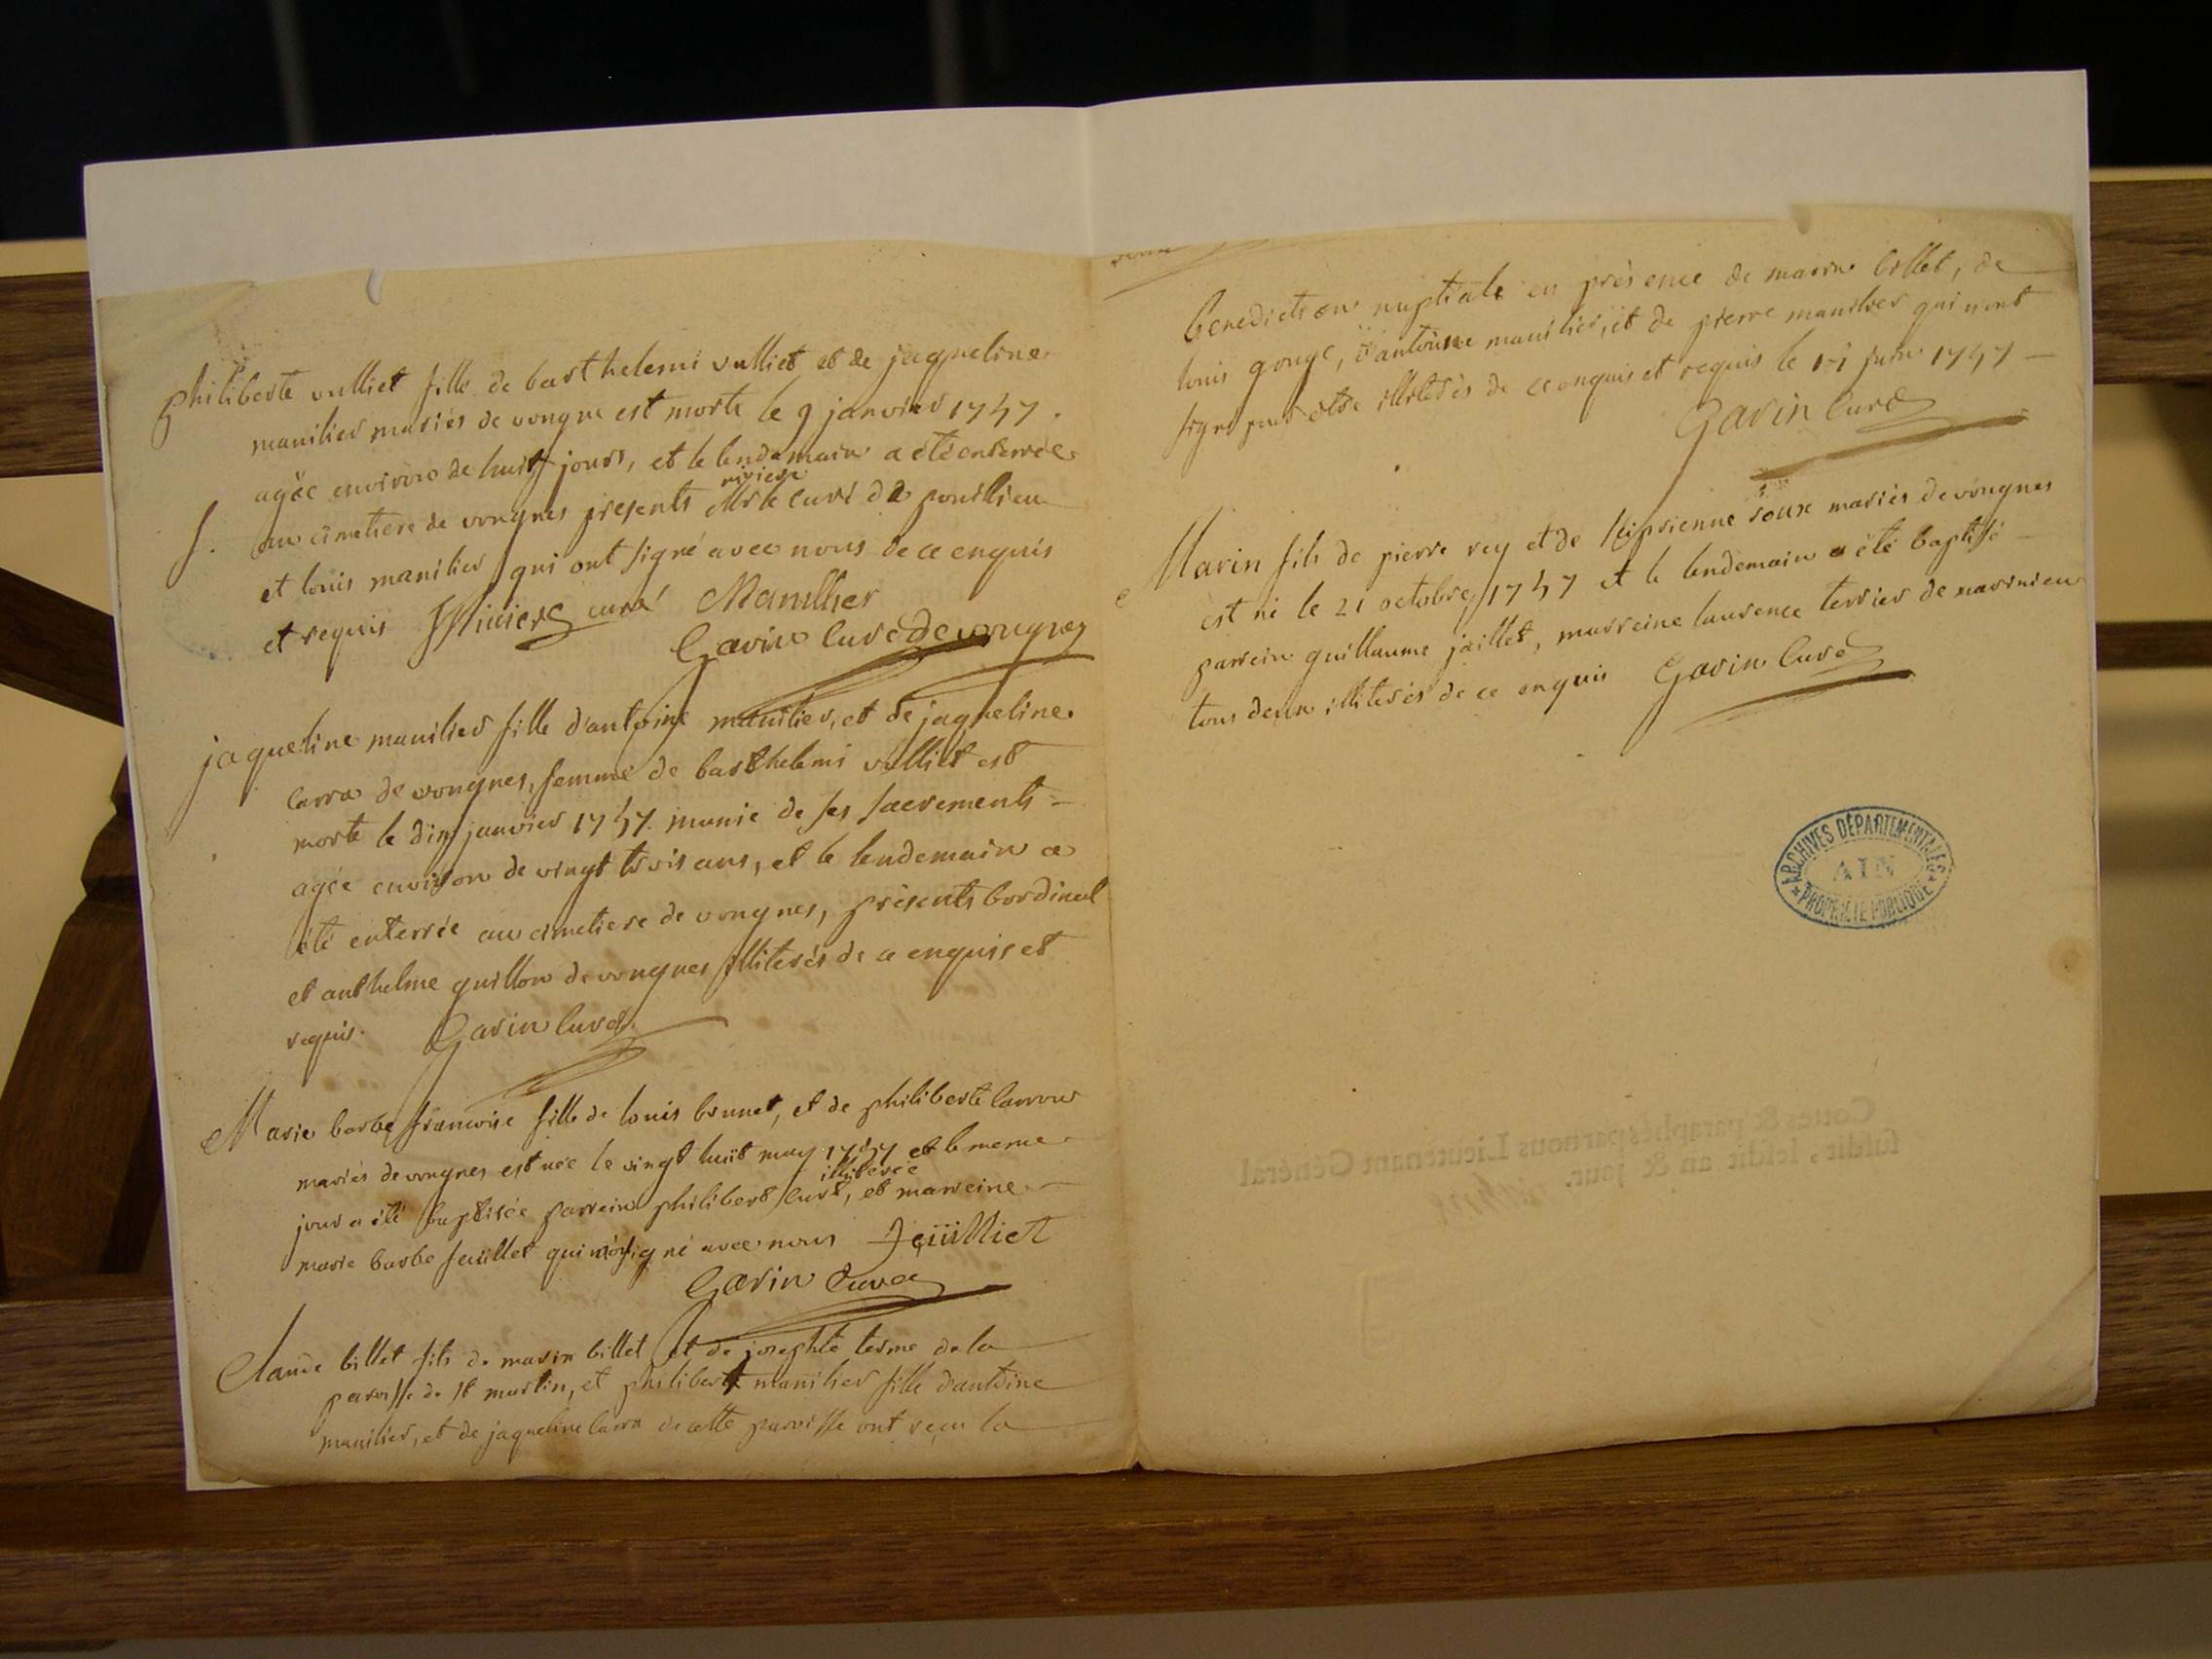 philiberte vulliet fille de barthelemi vulliet et de jaqueline
manilier mariés de vongne est morte le 9 janvier 1747.
agée environ de huit jours, et le lendemain a été enterrée
au cimetiere de vongnes presents Mr riviere le curé de pouillieu
et louis manilier qui ont signé avec nous de ce enquis
et requis JRiviere curé Manillier
Gavin Curé de vongnes
jaqueline manilier fille d'antoine manilier, et de jaqueline
carra de vongnes, femme de barthelemi vulliet est
morte le dix janvier 1747. munie de ses sacrements
agée environ de vingt trois ans, et le lendemain a
été enterrée au cimetiere de vongnes, présents bordinat
et anthelme guillon de vongnes illiterés de ce enquis et
requis. Gavin Curé
Marie barbe francoise fille de louis brunet, et de philiberte
mariés de vongnes est née le vingt huit may 1747 et le meme
jour a été baptisée parrein philibert curt, illiteré et marreine
marie barbe feuillet qui a signé avec nous Feüilliet
Gavin Curé
Claude billet fils de marin billet et de josephte terme de la
paroisse de st martin, et philiberte manilier fille d'antoine
manilier, et de jaqueline carra de cette paroisse ont reçu la
benediction nuptiale en présence de marin billet, de
louis gouge, d'antoine manilier, et de pierre manilier qui n'ont
signé pour etre illiterés de ce enquis et requis le juin 1747
Gavin Curé
Marin fils de pierre rey et de roux mariés de vongnes
est né le 21 octobre 1747 et le lendemain a été baptisé
parrein guillaume jaillet, marreine laurence terrier de marinieu
tous deux illiterés de ce enquis Gavin Curé
ARCHIVES DÉPARTEMENTALES
AIN
PROPRIÉTÉ PUBLIQUE
Cottés & paraphés par nous Lieutenant Général
susdit, lesdit an & jour.